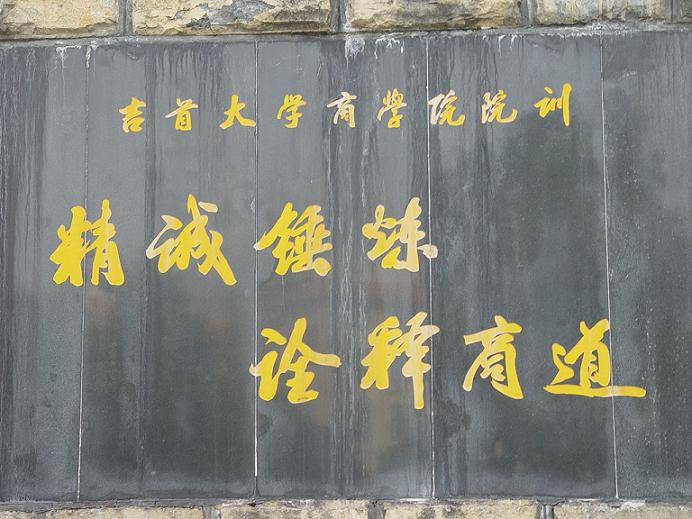 吉首大学商學院院训
精诚锤炼
诠释商道